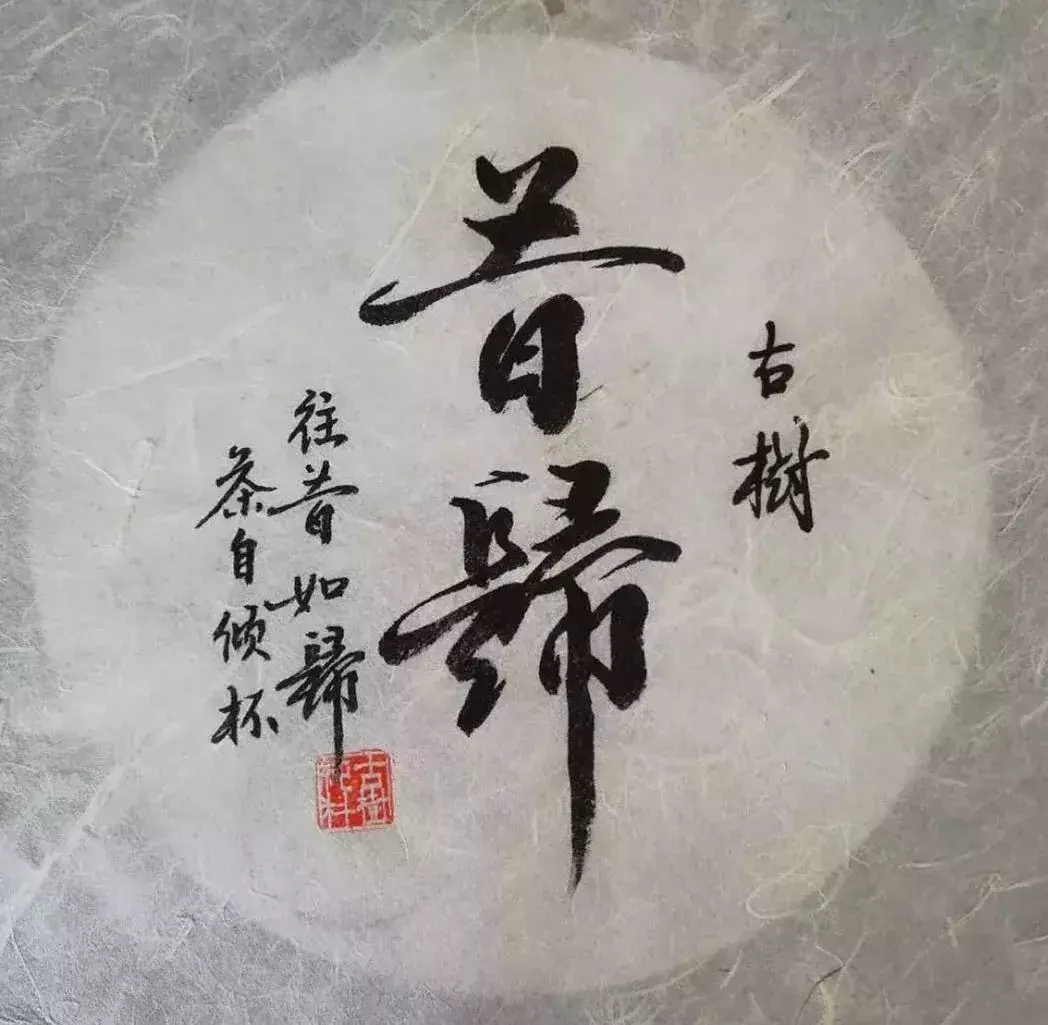 古樹
昔歸
往昔如歸
茶自傾杯